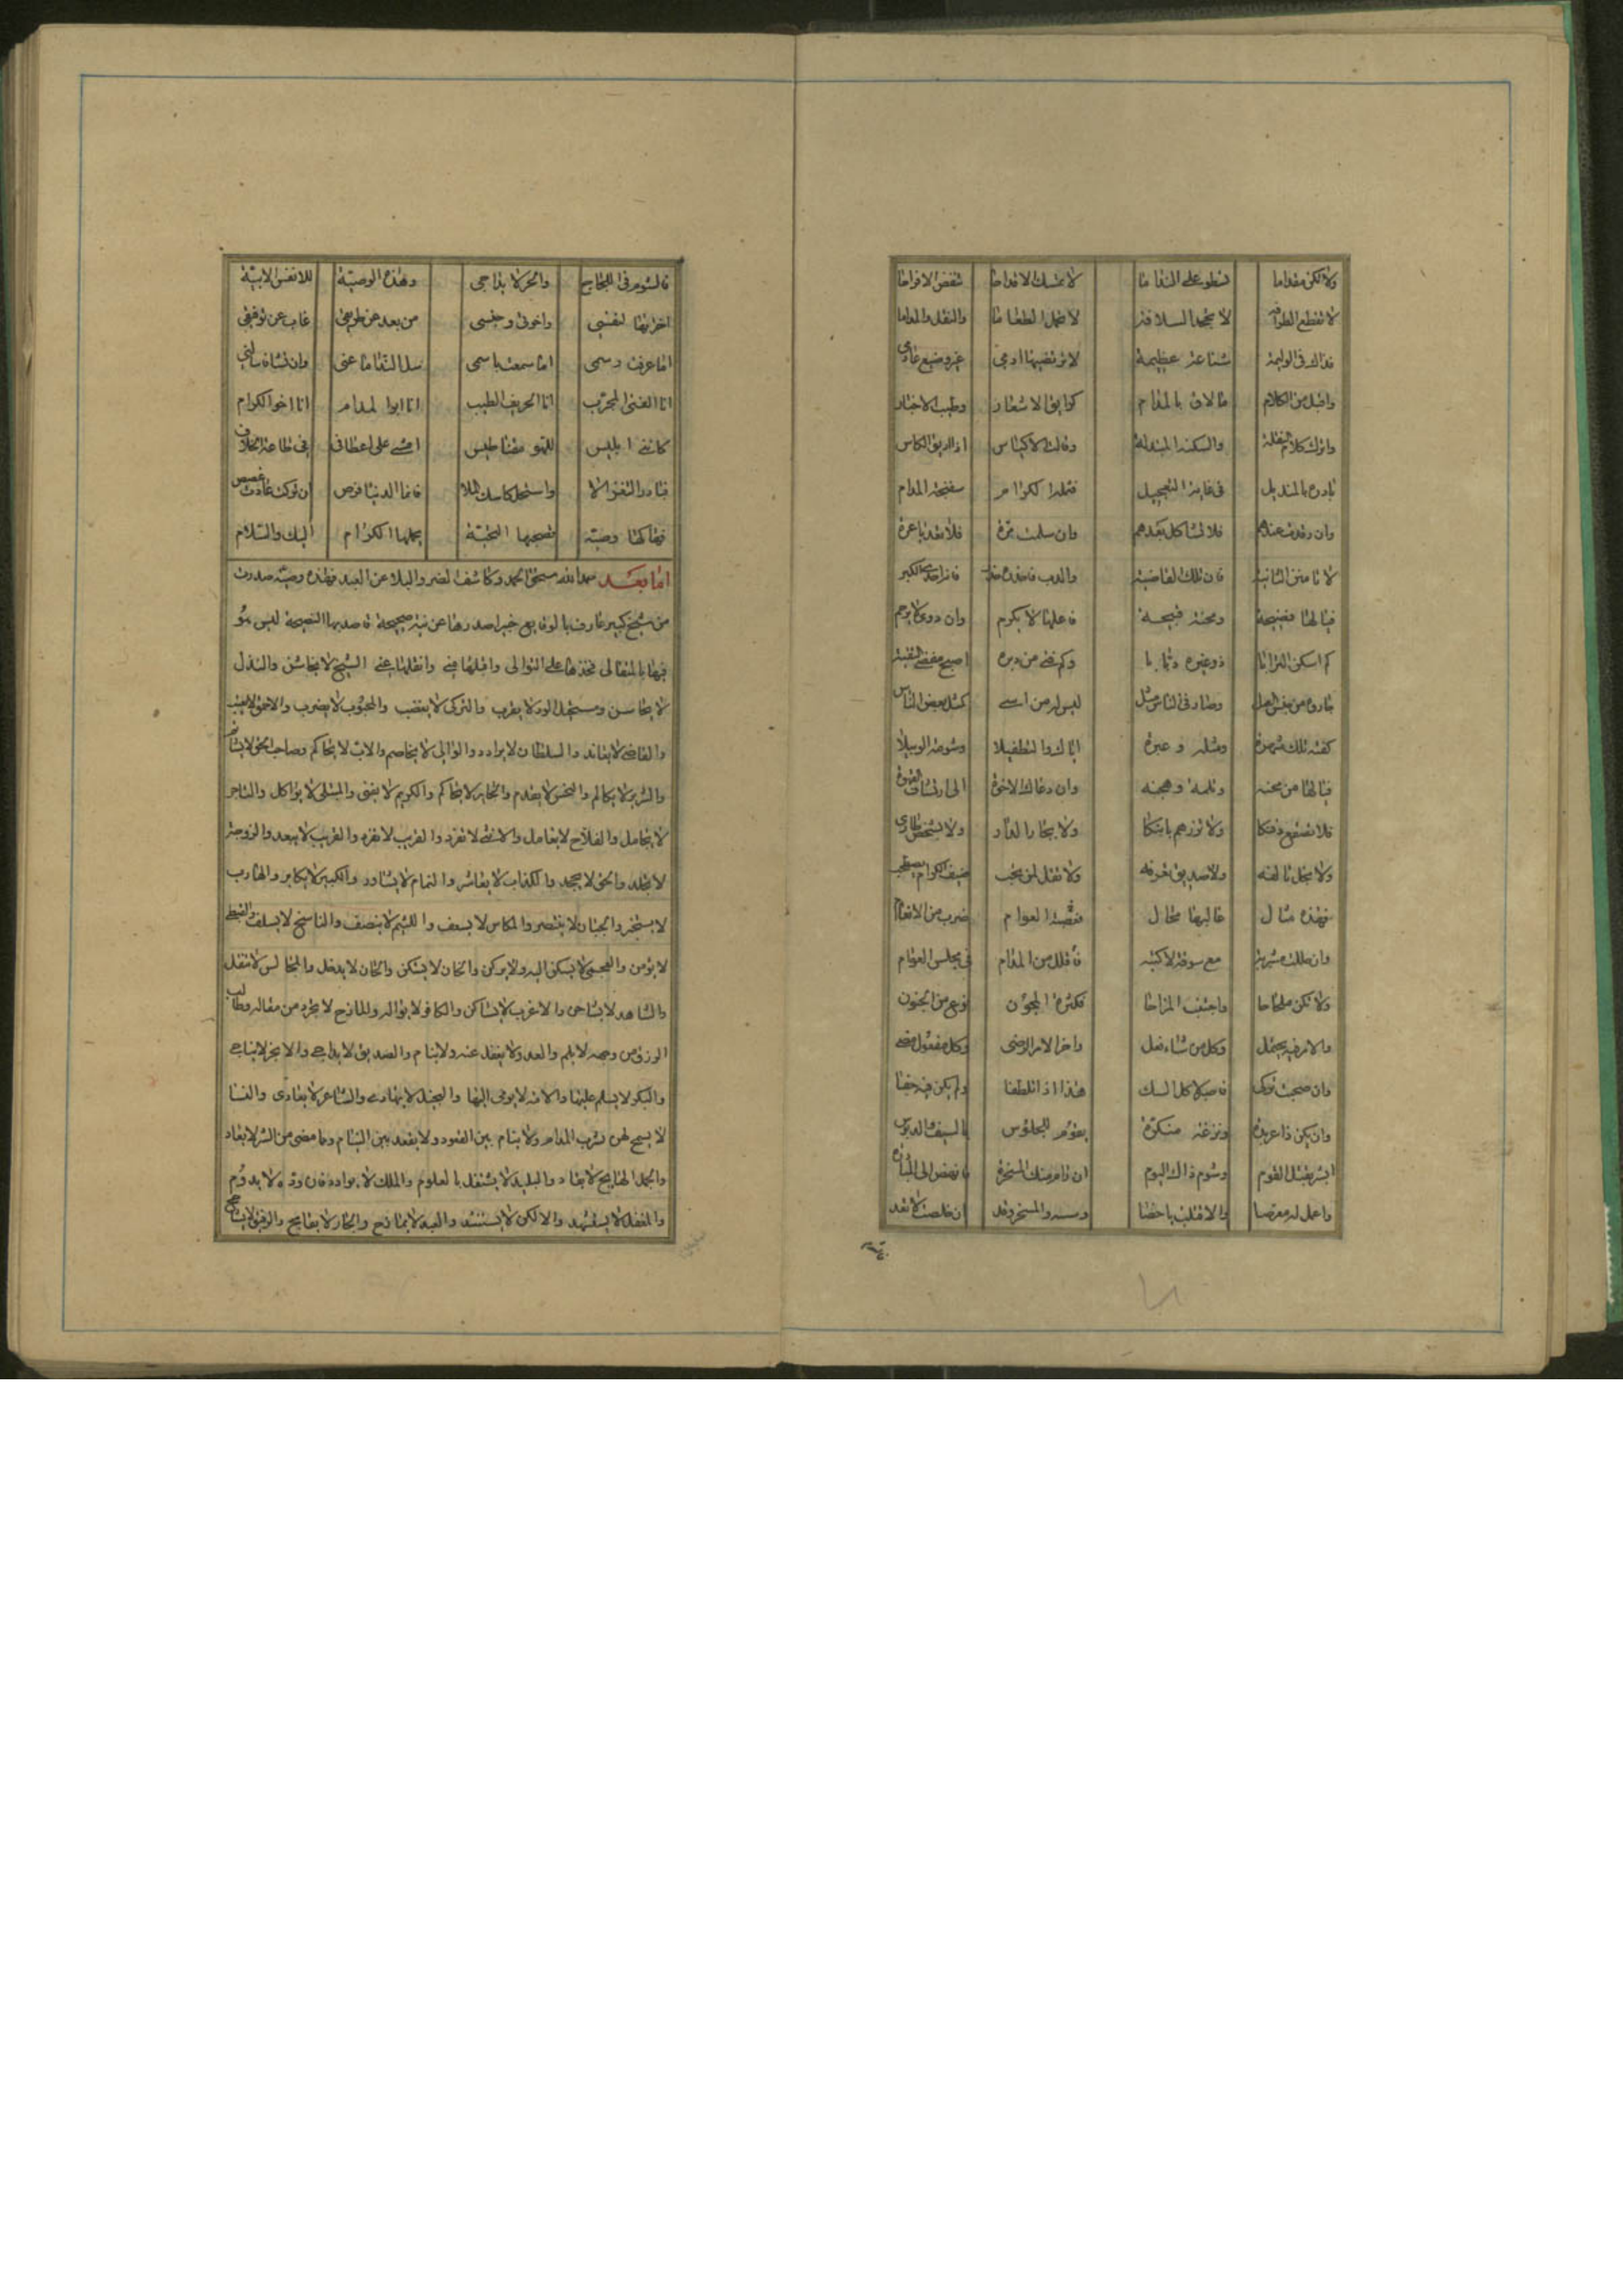 ولا تكن مقداما تسطو على الندامى لا تمسك الاقداحا تنغص الافراحا
لا تقطع الطرافه لا تجحد السلافه لا تحمل الطعاما والنقل والمداما
فذاك فى الوليمة شناعة عظيمة لا يرتضيها ادمى غير وضيع عادم
واقبل من الكلام ما لاق بالمدام كرايق الاشعار وطيب الاخبار
واترك كلام السفلة والنكتة المبتذلة وقالت الاكياس اذا اريق الكاس
بادره بالمنديل فى غاية التعجيل فتلك الكرام سفنجة المدام
وان رقدت عندهم فلا تشاكل عبدهم وان سلمت مرة فلا تعد يا عرة
لا تامنن الثانية فان تلك القاضية والدب فاحذره فانه احدى الكبر
فيا لها فضيحة ومحنة قبيحة فاعلها لا يكرم وان دوى لا يرحم
كم اسكن الترابا ذو غيرة دبابا وكم فتى من دبه اصبح مفضى الثقبة
جازوه من جنس العمل وصار فى الناس مثل ليس له من اسى كمثل بعض الناس
كفته تلك شهرة ومثلة وعبرة اياك والتطفيلا وشومه الوبيلا
فيا لها من محنة وثلمة وهجنة وان دعاك الاخوة الى ارتشاف القهوة
فلا تصقع ذقنكا ولا تزرهم بابنكا ولا بجار الدار ولا لشخص طارى
ولا بخل تالفه ولا صديق تعرفه ولا تقل لمن تحب ضيف الكرام يصطحب
فهذه امثال غالبها محال فقصه العوام ضرب من الانعام
وان حللت مشربة مع سوقة لا كتبه فاقلل من المدام فى مجلس العوام
ولا تكن ملحاحا واجتنب المزاحا فكثرة المجون نوع من الجنون
والامر فيه يحتمل وكل من شاء فعل واخر الامر الرضى وكل مفعول مضى
وان صحبت تركى فاصبر لاكل السك هذا اذا تلطفا ولم يكن فيه جفا
وان يكن ذا عربدة ونزغة منكرة يقوم للجلوس بالسيف والدبوس
ابشر بقتل القوم وشوم ذاك اليوم ان رام منك المسخرة فانهض الى المبادرة
واعمل له معرصا والا قلب باحصا ومسه والمسخره فقد ان خلصت لا تعد
فالشوم فى اللجاج والحر لا يداجى وهذه الوصية للانفس الابية
اخترتها لنفسى واخوتى وجنسى من بعد عن طريقى غاب عن توفيقى
اما عرفت رسمى اما سمعت باسمى سل الندامى عنى وان تشا فسلنى
انا الفتى المجرب انا الحريف الطيب انا ابو المدام انا اخو الكرام
كاننى ابليس للهو مغناطيس امشى على اعطافى فى طاعة الخلاف
فبادر التغرالا واستجل كاسات الطلا فانما الدنيا فرص ان تركت عادت غصص
فهاكها وصية تصحبها التحية يحملها الكرام اليك والسلام
اما بعد حمد الله مستحق الحمد وكاشف الضر والبلا عن العبد فهذه وصية صدرت
من شيخ كبير عارف بالوقايع خبير اصدرها عن نية صحيحة قاصد بها النصيحة ليس هو
فيها بالمتغالى فخذها على التوالى واقبلها منى وانقلها عنى الشيخ لا يخاشن والنذل
لا يحاسن ومستحيل الود لا يقرب والتركى لا يغضب والمحبوب لا يضرب والاحمق لا يعتب
والقاضى لا يعاند والسلطان لا يرادد والوالى لا يخاصم والاب لا يحاكم وصاحب الحق لا يشاتم
والشرير لا يكالم والنحس لا يقدم والجاير لا يحاكم والكريم لا يفنى والمبتلى لا يؤاكل والتاجر
لا يجامل والفلاح لا يعامل والانثى لا تفرد والقريب لا تفره والغريب لا يبعد والزوجة
لا تخلد والحق لا يجحد والكذاب لا يعاشر والنمام لا يشاور والكبير لا يكابر والهارب
لا يستخبر والجبان لا ينتصر والمكاس لا يسعف واللئيم لا ينصف والناسخ لا يسلف والقبطى
لا يؤمن والعجمى لا يسكن اليه ولا يركن والخان لا يسكن والحان لا يدخل والمجالس لا تنقل
والشاهد لا يشاحن والاعزب لا يساكن والكافر لا يوالى والمازح لا يحرد من مقاله وطالب
الرزق من وجهه لا يلم والعدو لا يغفل عنه ولا ينام والصديق لا يداجى والاخر لا يناجى
والبكر لا يسلم عليها والامة لا يومى اليها والبخيل لا يهادى والشاعر لا يعادى والنسا
لا يسمح لهن بشرب المدام ولا ينام بين القعود ولا يقعد بين النيام وما مضى من الشر لا يعاد
والجمل الهايج لا يقاد والبليد لا يشتغل بالعلوم والملك لا يوادد فان وده لا يدوم
والمغفل لا يستشهد والالكن لا يستنشد والعبد لا يمازح والجار لا يقابح والرفيق لا يشاحح